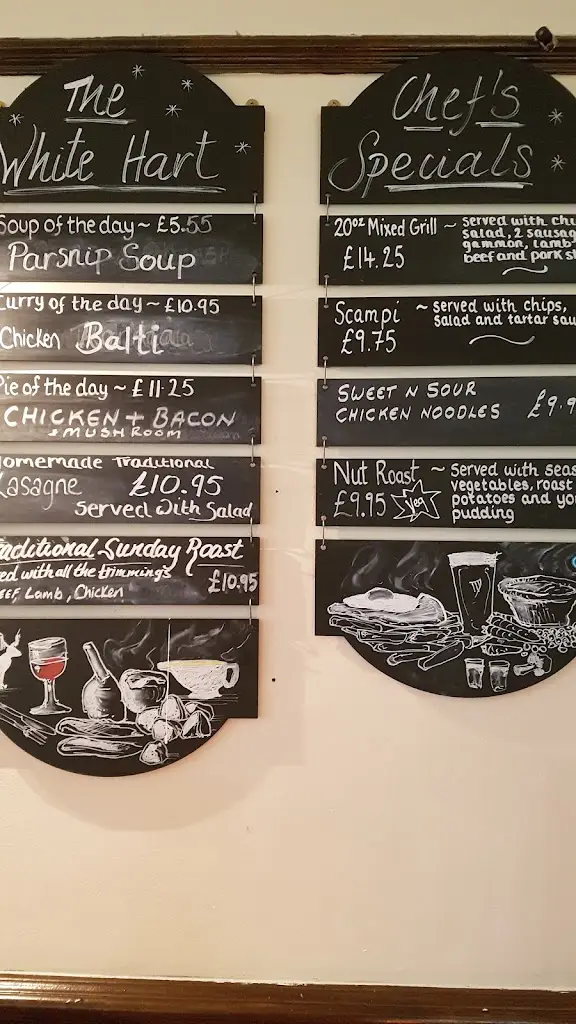 The
White Hart
Soup of the day ~ £5.55
Parsnip Soup
Curry of the day ~ £10.95
Chicken Balti
Pie of the day ~ £11.25
CHICKEN + BACON
+ MUSHROOM
Homemade Traditional
Lasagne £10.95
Served With Salad
Traditional Sunday Roast
ed with all the trimmings
£10.95
EEF, Lamb, Chicken
Chef's
Specials
20oz Mixed Grill ~ served with chi
salad, 2 sausag
£14.25
gammon, lamb
beef and pork st
Scampi ~ served with chips,
salad and tartar sau
£9.75
SWEET N SOUR
CHICKEN NOODLES £9.9
Nut Roast ~ Served with seas
vegetables, roast
£9.95 Veg
potatoes and yo
pudding